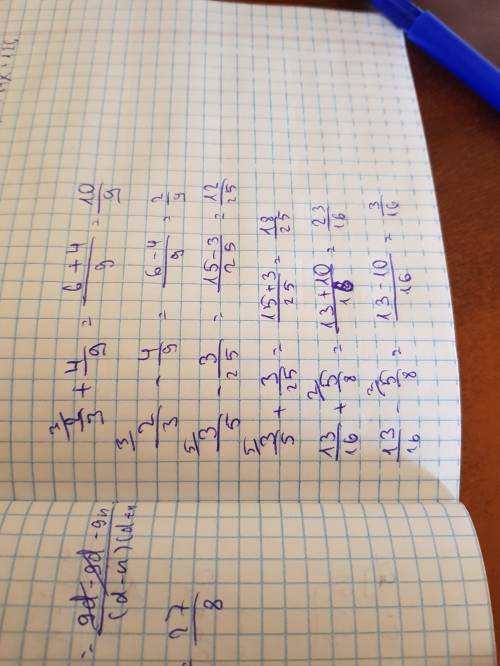 ³2/3 + 4/9 = (6+4)/9 = 10/9
³2/3 - 4/9 = (6-4)/9 = 2/9
⁵3/5 - 3/25 = (15-3)/25 = 12/25
⁵3/5 + 3/25 = (15+3)/25 = 18/25
13/16 + ²5/8 = (13+10)/16 = 23/16
13/16 - ²5/8 = (13-10)/16 = 3/16
= 27/8